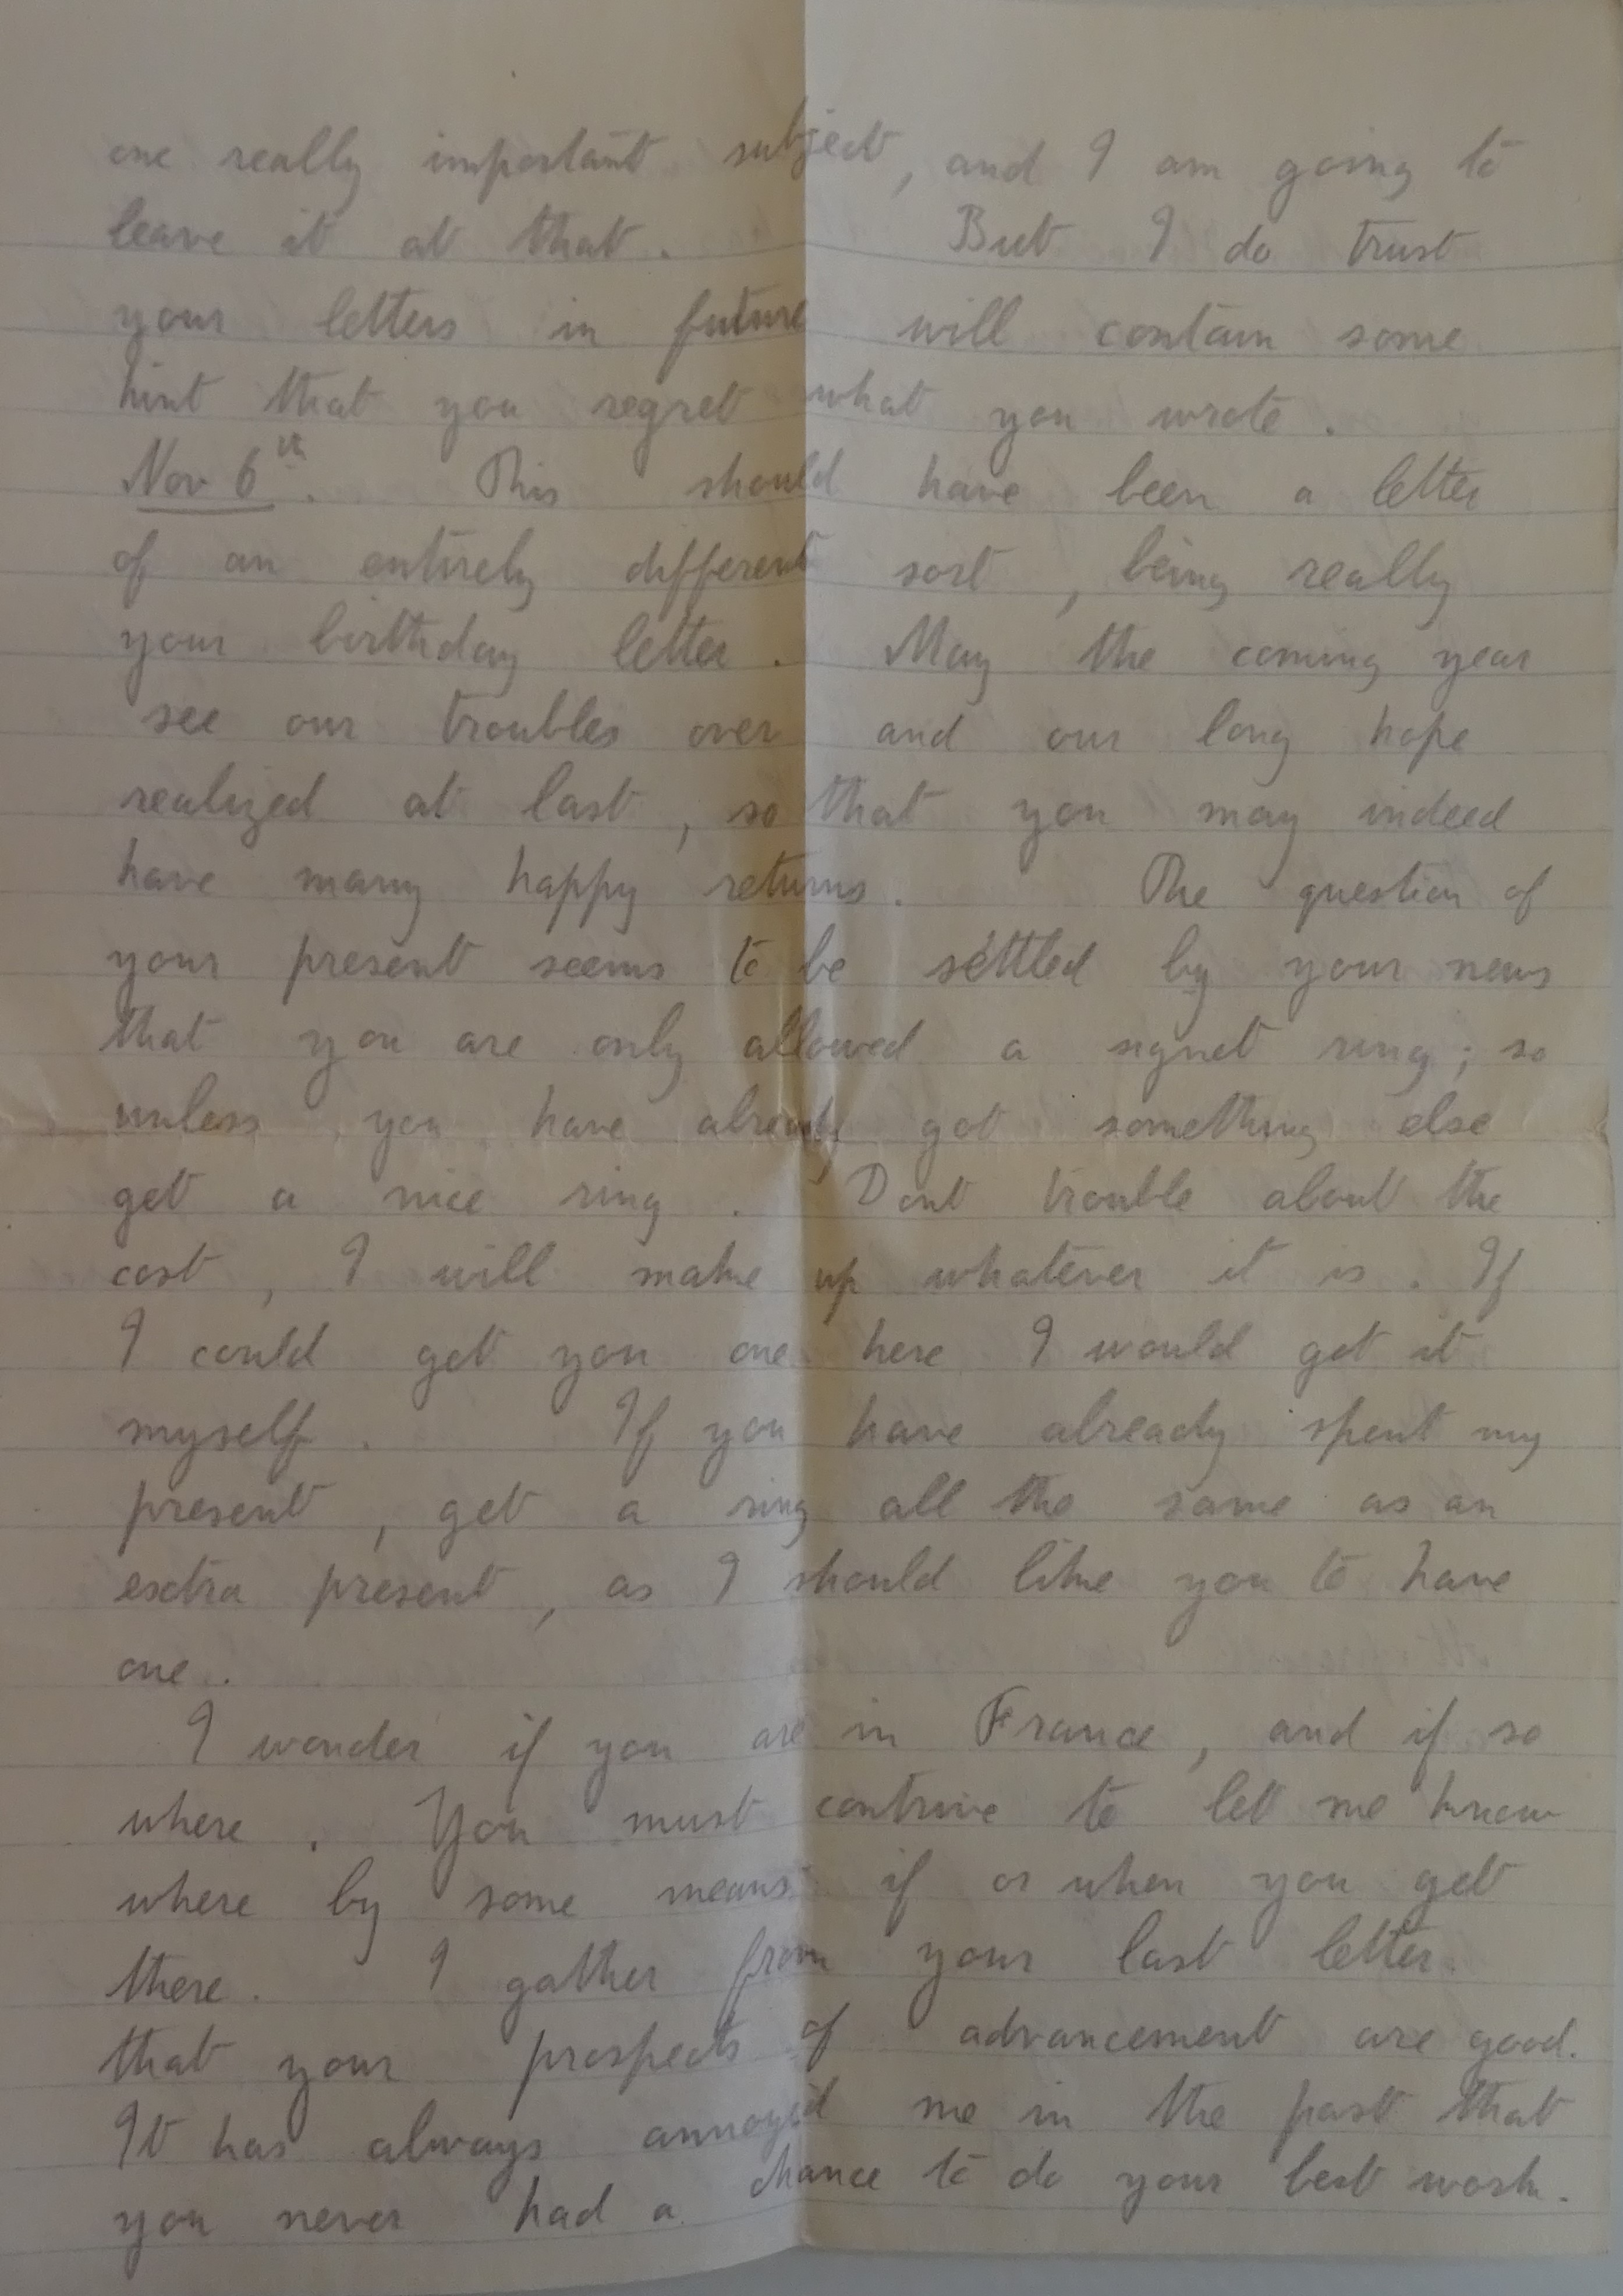 one really important subject, and I am going to
leave it at that. But I do trust
your letters in future will contain some
hint that you regret what you wrote.
Nov 6th. This should have been a letter
of an entirely different sort, being really
your birthday letter. May the coming year
see our troubles over and our long hope
realized at last, so that you may indeed
have many happy returns. The question of
your present seems to be settled by your news
that you are only allowed a signet ring; so
unless you have already got something else
get a nice ring. Dont trouble about the
cost, I will make up whatever it is. If
I could get you one here I would get it
myself. If you have already spent my
present, get a ring all the same as an
extra present, as I should like you to have
one.
I wonder if you are in France, and if so
where. You must contrive to let me know
where by some means if or when you get
there. I gather from your last letter
that your prospects of advancement are good.
It has always annoyed me in the past that
you never had a chance to do your best work.